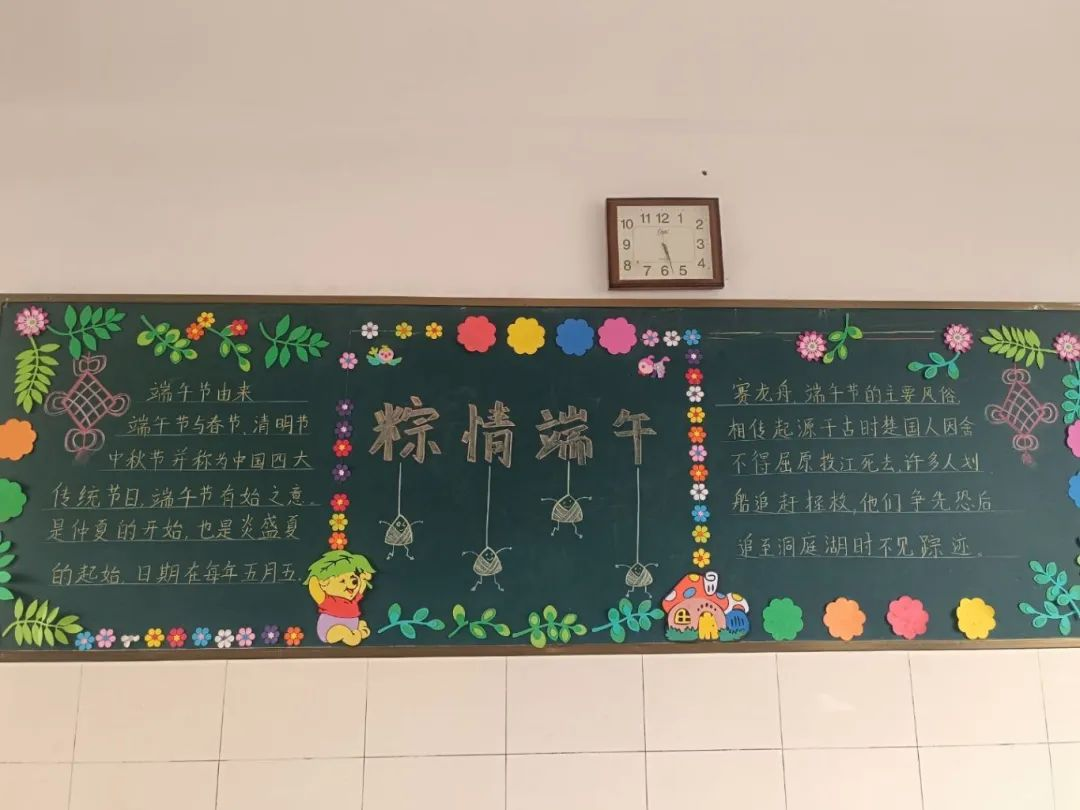 11 12 1
10 2
9 3
8 4
7 6 5
端午节由来
端午节与春节、清明节
中秋节并称为中国四大
传统节日,端午节有始之意。
是仲夏的开始,也是炎盛夏
的起始,日期在每年五月五.
粽情端午
赛龙舟,端午节的主要风俗,
相传起源于古时楚国人因舍
不得屈原投江死去,许多人划
船追赶拯救,他们争先恐后
追至洞庭湖时不见踪迹。